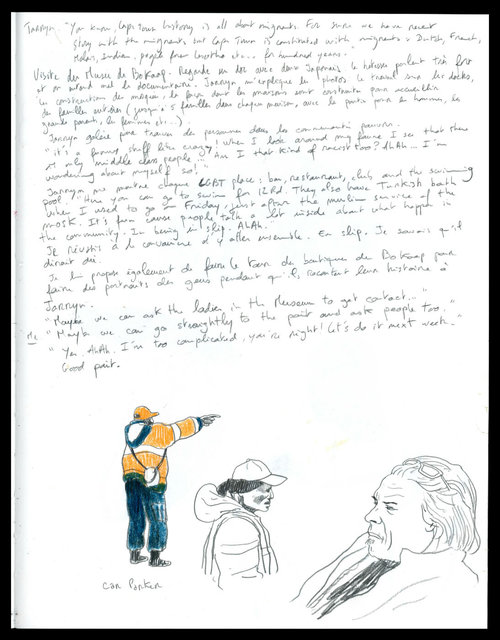 Tarryn "You know, Cape Town history is all about migrants. For sure we have recent
story with the migrants but Cape Town is constituted with migrants: Dutch, French,
Malays, Indian, people from Lesotho etc... for hundred years."
Visite des Musée de Bokaap. Regarde un doc avec deux Japonais, le hotesse parlent très fort
et on entend mal le documentaire. Tarryn m'explique les photos, le travail sur les docks,
la construction de mosquée, la façon dont les maisons sont construites pour accueillir
de familles entières (jusqu'à 5 familles dans chaque maison, avec la porte pour les hommes, les
grands parents, les femmes etc...)
Tarryn galère pour trouver des personnes dans les communautés
"it's a funny stuff like crazy! When I look around my I see that there
is only middle class people. Am I that kind of racist too? AhAh... I'm
wondering about myself so!"
Tarryn me montre chaque LGBT place: bar, restaurant, club and the swimming
pool. "Here you can go to swim for 12Rd. They also have Turkish bath
when I used to go on Friday, just after the muslim service of the
mosk. It's fun cause people talk a lot inside about what happen in
the community. In being in slip. AhAh.
Je réussis à le convaincre d'y aller ensemble. En slip. Je savais qu'il
dirait oui.
Je lui propose également de faire le tour de boutiques de Bo Kaap pour
faire des portraits des gens pendant qu'ils racontent leur histoire à
Tarryn.
"Maybe we can ask the ladies in the Museum to get contact..."
Me "Maybe we can go straightly to the point and ask people too."
"Yes. AhAh. I'm too complicated, you're right! Let's do it next week."
Good point.
Car Parker